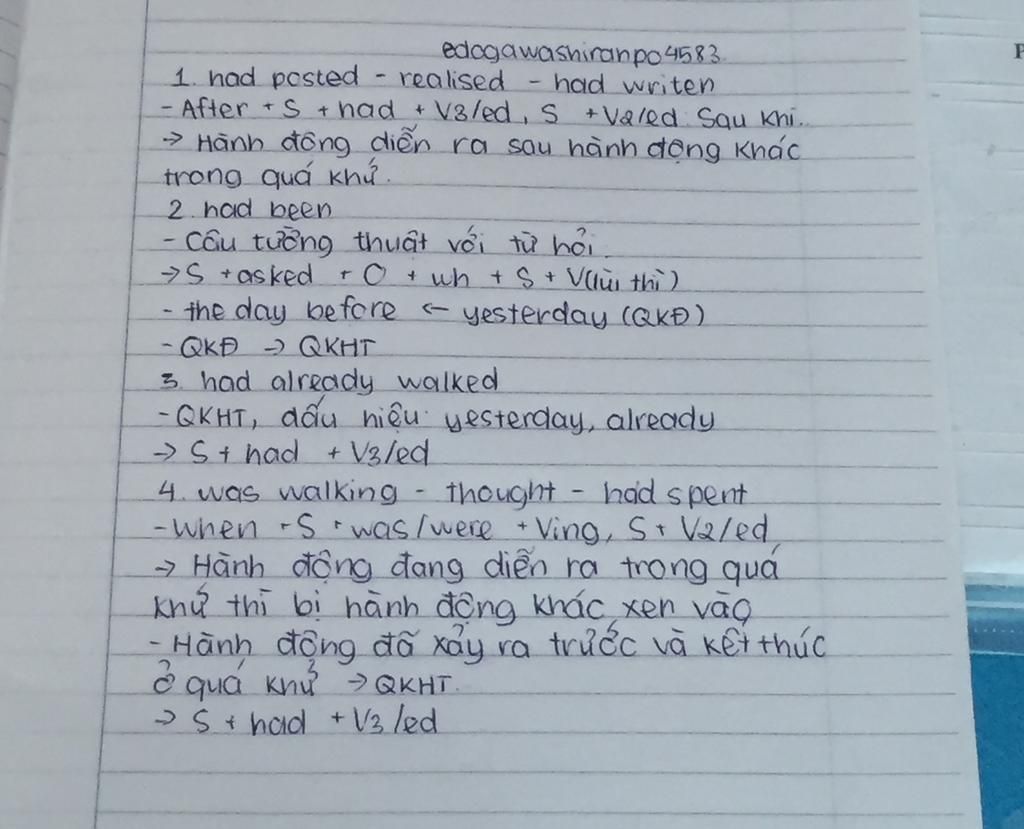 edogawashiranpo4583
1. had posted - realised - had writen
- After + S + had + V3/ed, S + V2/ed: Sau khi..
→ Hành động diễn ra sau hành động khác
trong quá khứ.
2. had been
- Câu tường thuật với từ hỏi.
→ S + asked + O + wh + S + V(lùi thì)
- the day before ← yesterday (QKĐ)
- QKĐ → QKHT
3. had already walked
- QKHT, dấu hiệu: yesterday, already
→ S + had + V3/ed
4. was walking - thought - had spent
- When + S + was/were + Ving, S + V2/ed
→ Hành động đang diễn ra trong quá
khứ thì bị hành động khác xen vào
- Hành động đã xảy ra trước và kết thúc
ở quá khứ → QKHT.
→ S + had + V3/ed